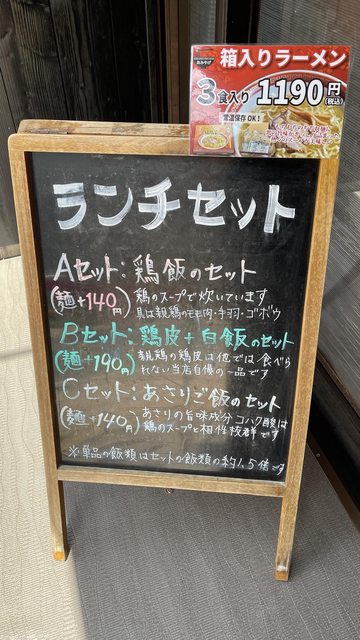 箱入りラーメン
3食入り 1190円
(税込)
常温保存OK!
ランチセット
Aセット:鶏飯のセット
(麺+140円)
鶏のスープで炊いています
具は親鶏のモモ肉・手羽・ゴボウ
Bセット:鶏皮+白飯のセット
(麺+190円)
親鶏の鶏皮は他では食べら
れない当店自慢の一品です
Cセット:あさりご飯のセット
(麺+140円)
あさりの旨味成分コハク酸は
鶏のスープと相性抜群です
※単品の飯類はセットの飯類の約1.5倍です